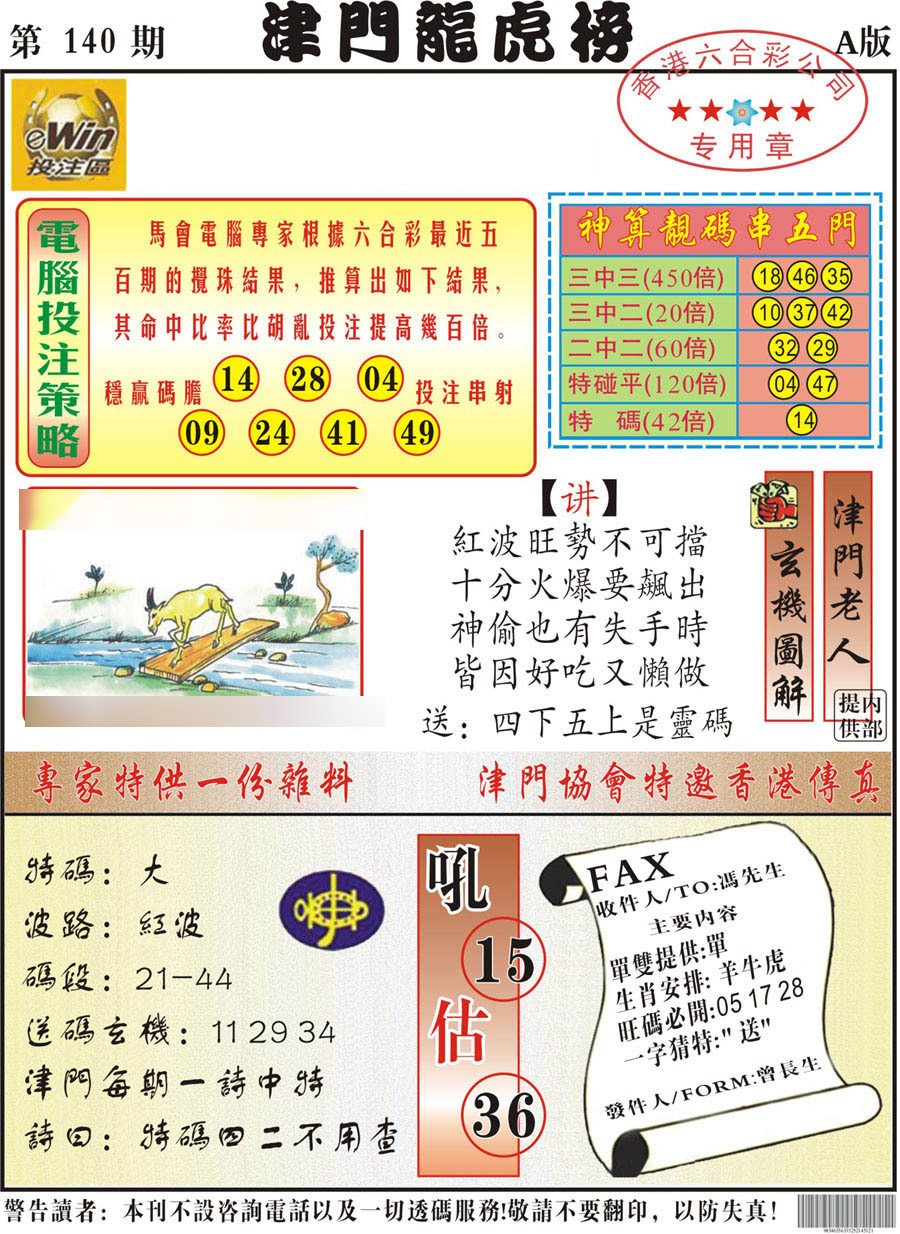 第 140 期
津門龍虎榜
A版
香港六合彩公司
专用章
eWin
投注區
電腦投注策略
馬會電腦專家根據六合彩最近五
百期的攪珠結果，推算出如下結果，
其命中比率比胡亂投注提高幾百倍。
穩贏碼膽 14 28 04 投注串射
09 24 41 49
神算靚碼串五門
三中三(450倍) 18 46 35
三中二(20倍) 10 37 42
二中二(60倍) 32 29
特碰平(120倍) 04 47
特 碼(42倍) 14
【讲】
紅波旺勢不可擋
十分火爆要飆出
神偷也有失手時
皆因好吃又懶做
送：四下五上是靈碼
玄機圖解
津門老人
内部提供
專家特供一份雜料
津門協會特邀香港傳真
特碼：大
波路：紅波
碼段：21-44
送碼玄機：11 29 34
津門每期一詩中特
詩曰：特碼四二不用查
吼
15
估
36
FAX
收件人/TO:馮先生
主要内容
單雙提供:單
生肖安排: 羊牛虎
旺碼必開:05 17 28
一字猜特:"送"
發件人/FORM:曾長生
警告讀者：本刊不設咨詢電話以及一切透碼服務!敬請不要翻印，以防失真！